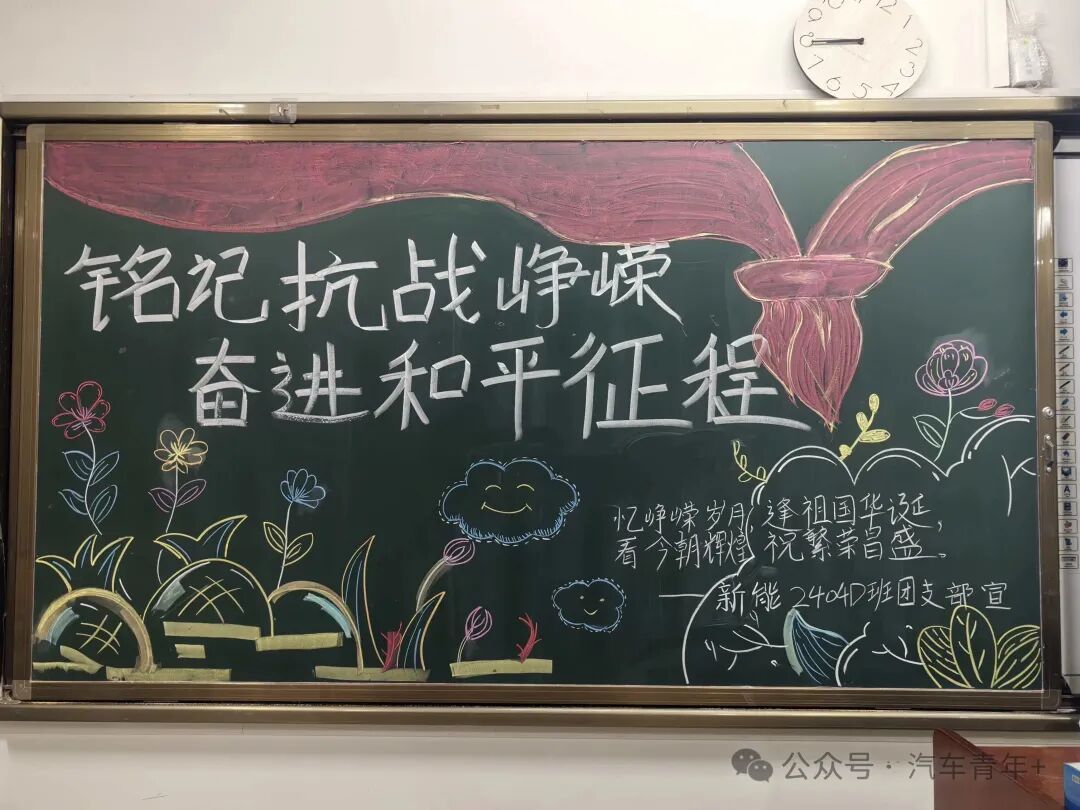 12
2
3
4
5
6
7
8
9
10
铭记抗战峥嵘
奋进和平征程
忆峥嵘岁月,逢祖国华诞,
看今朝辉煌,祝繁荣昌盛。
新能2404D班团支部宣
公众号·汽车青年+